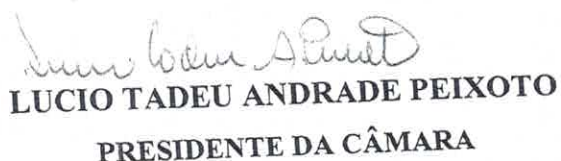 LUCIO TADEU ANDRADE PEIXOTO
PRESIDENTE DA CÂMARA